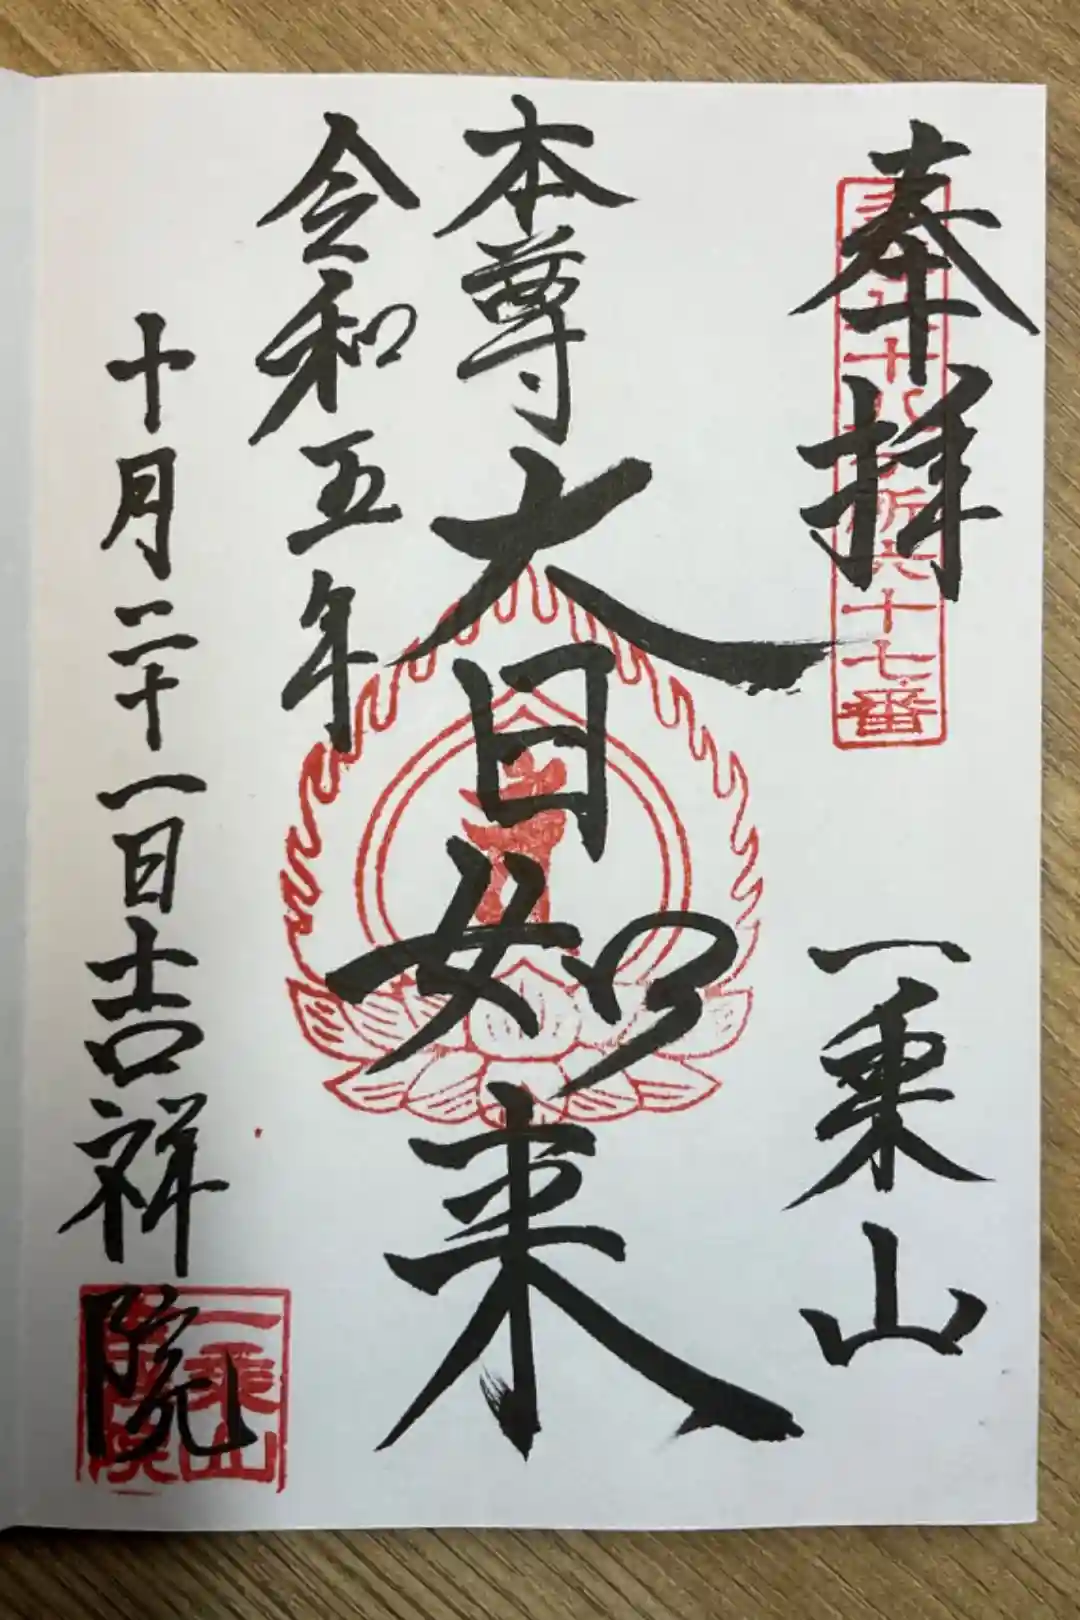 奉拝　一乗山
十八 所六十七番
本尊大日如来
令和五年
十月二十一日吉祥院
一乗山
院